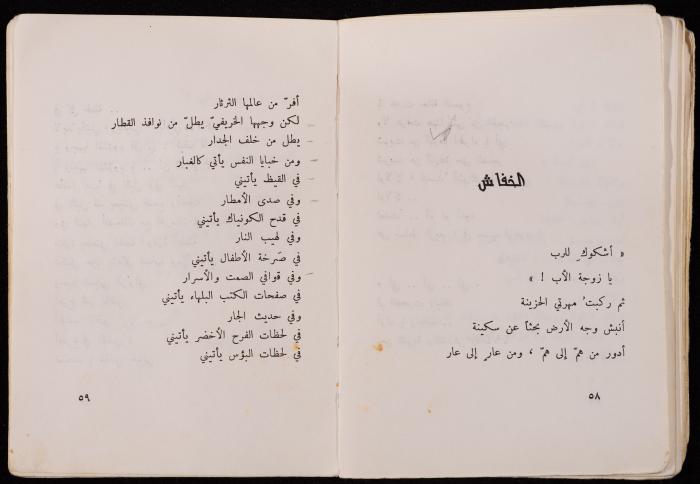 الخفاش
« أشكوكِ للرب
يا زوجة الأب ! »
ثم ركبتُ مهرتي الحزينة
أنبش وجه الأرض بحثاً عن سكينة
أدور من همّ إلى همّ ، ومن عارٍ إلى عار
٥٨
أفرّ من عالمها الثرثار
لكن وجهها الخريفيّ يطلّ من نوافذ القطار
يطل من خلف الجدار
ومن خبايا النفس يأتي كالغبار
في القيظ يأتيني
وفي صدى الأمطار
في قدح الكونياك يأتيني
وفي لهيب النار
في صرخة الأطفال يأتيني
وفي قوافي الصمت والأسرار
في صفحات الكتب البلهاء يأتيني
وفي حديث الجار
في لحظات الفرح الأخضر يأتيني
في لحظات البؤس يأتيني
٥٩